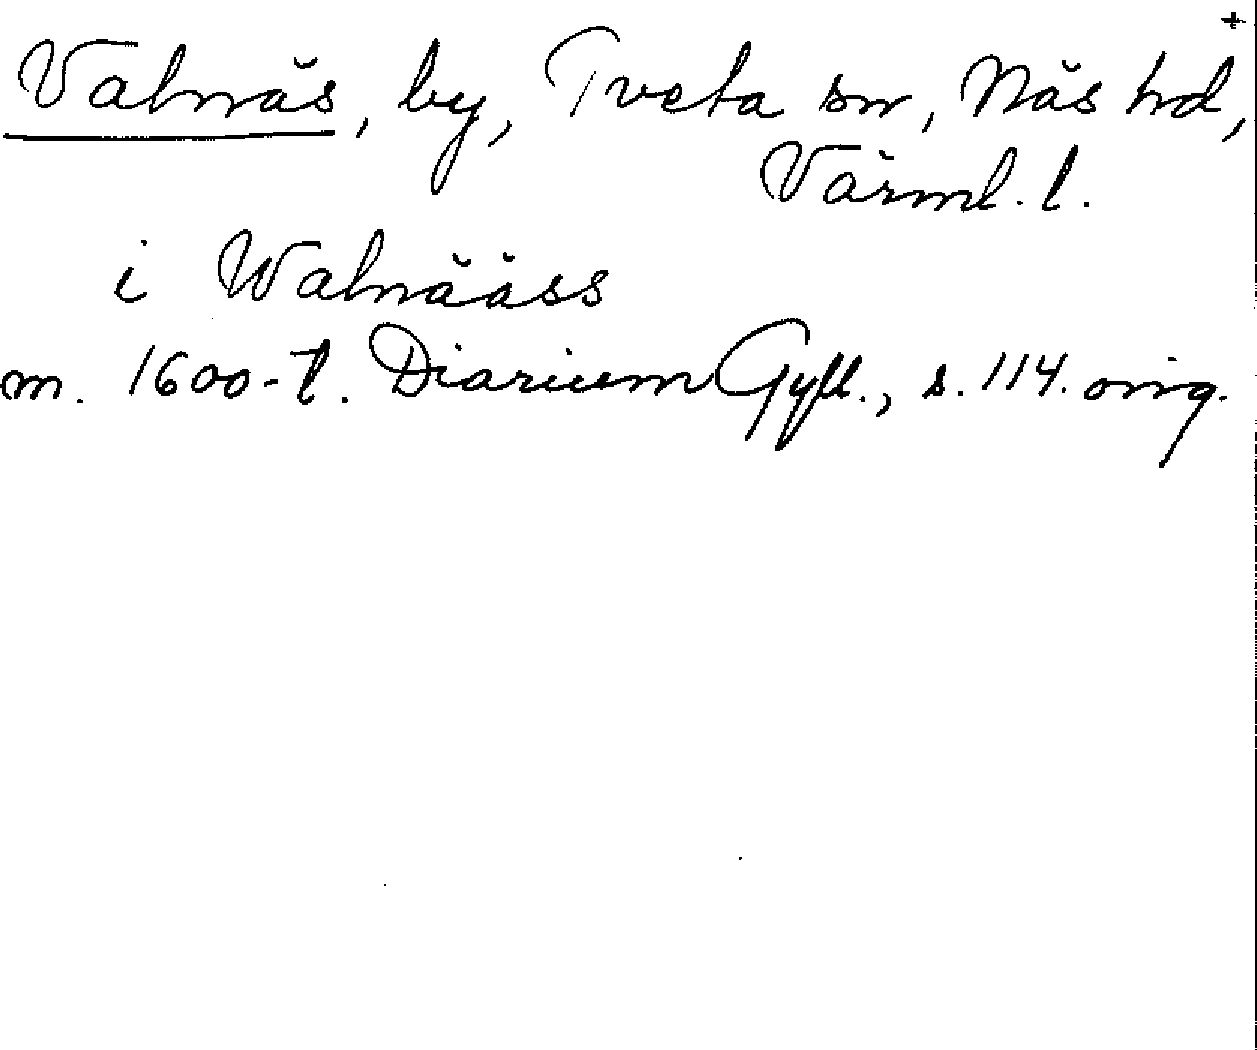 +
Valnäs, by, Tveta sn, Näs hd,
Värml. l.
i Walnääss
m. 1600-t. Diarium Gyll., s. 114. orig.